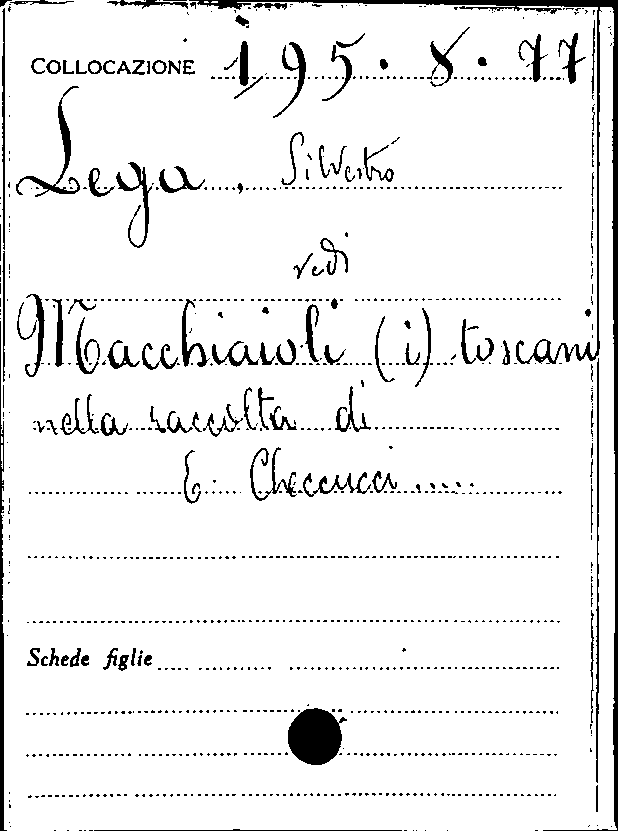 COLLOCAZIONE 195.8.77
Lega, Silvestro
vedi
Macchiaioli (i) toscani
nella raccolta di
E. Checcucci.....
Schede figlie